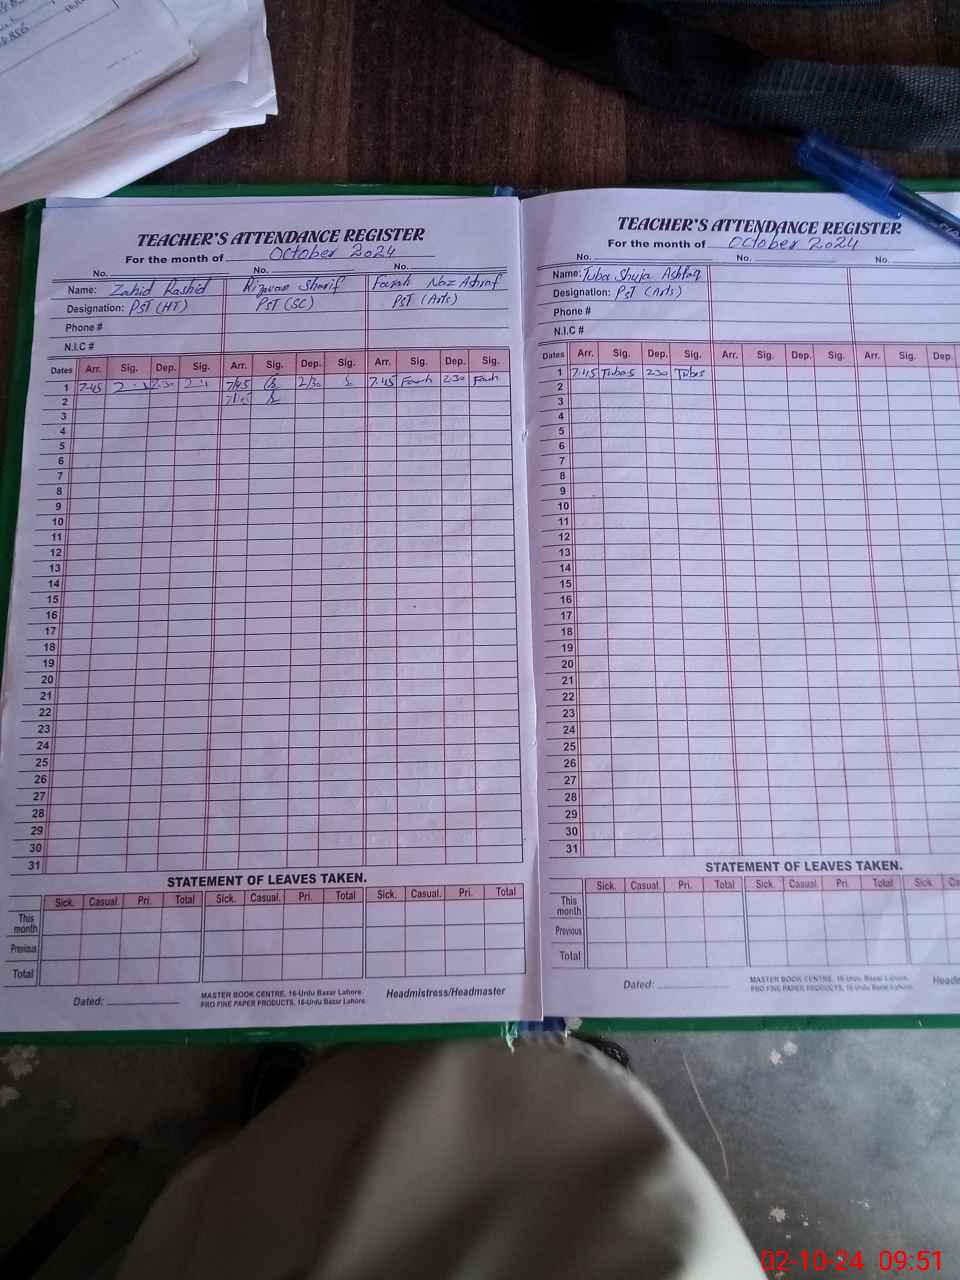 TEACHER'S ATTENDANCE REGISTER
For the month of October 2024
No. No. No.
Name: Zahid Rashid Rizwan Sharif Farah Naz Ashraf
Designation: PST (HT) PST (SC) PST (Arts)
Phone #
N.I.C #
Dates Arr. Sig. Dep. Sig. Arr. Sig. Dep. Sig. Arr. Sig. Dep. Sig.
1 7:45 2:30 7/45 2/30 7:45 Farah 2:30 Farah
2 7/45
3
4
5
6
7
8
9
10
11
12
13
14
15
16
17
18
19
20
21
22
23
24
25
26
27
28
29
30
31
STATEMENT OF LEAVES TAKEN.
Sick. Casual. Pri. Total Sick. Casual. Pri. Total Sick. Casual. Pri. Total
This month
Previous
Total
Dated:
MASTER BOOK CENTRE, 16-Urdu Bazar Lahore.
PRO FINE PAPER PRODUCTS, 16-Urdu Bazar Lahore.
Headmistress/Headmaster
TEACHER'S ATTENDANCE REGISTER
For the month of October 2024
No. No. No.
Name: Tuba Shuja Ashfaq
Designation: PST (Arts)
Phone #
N.I.C #
Dates Arr. Sig. Dep. Sig. Arr. Sig. Dep. Sig. Arr. Sig. Dep.
1 7:45 2:30
2
3
4
5
6
7
8
9
10
11
12
13
14
15
16
17
18
19
20
21
22
23
24
25
26
27
28
29
30
31
STATEMENT OF LEAVES TAKEN.
Sick. Casual. Pri. Total Sick. Casual. Pri. Total Sick.
This month
Previous
Total
Dated:
MASTER BOOK CENTRE, 16-Urdu Bazar Lahore.
PRO FINE PAPER PRODUCTS, 16-Urdu Bazar Lahore.
02-10-24 09:51